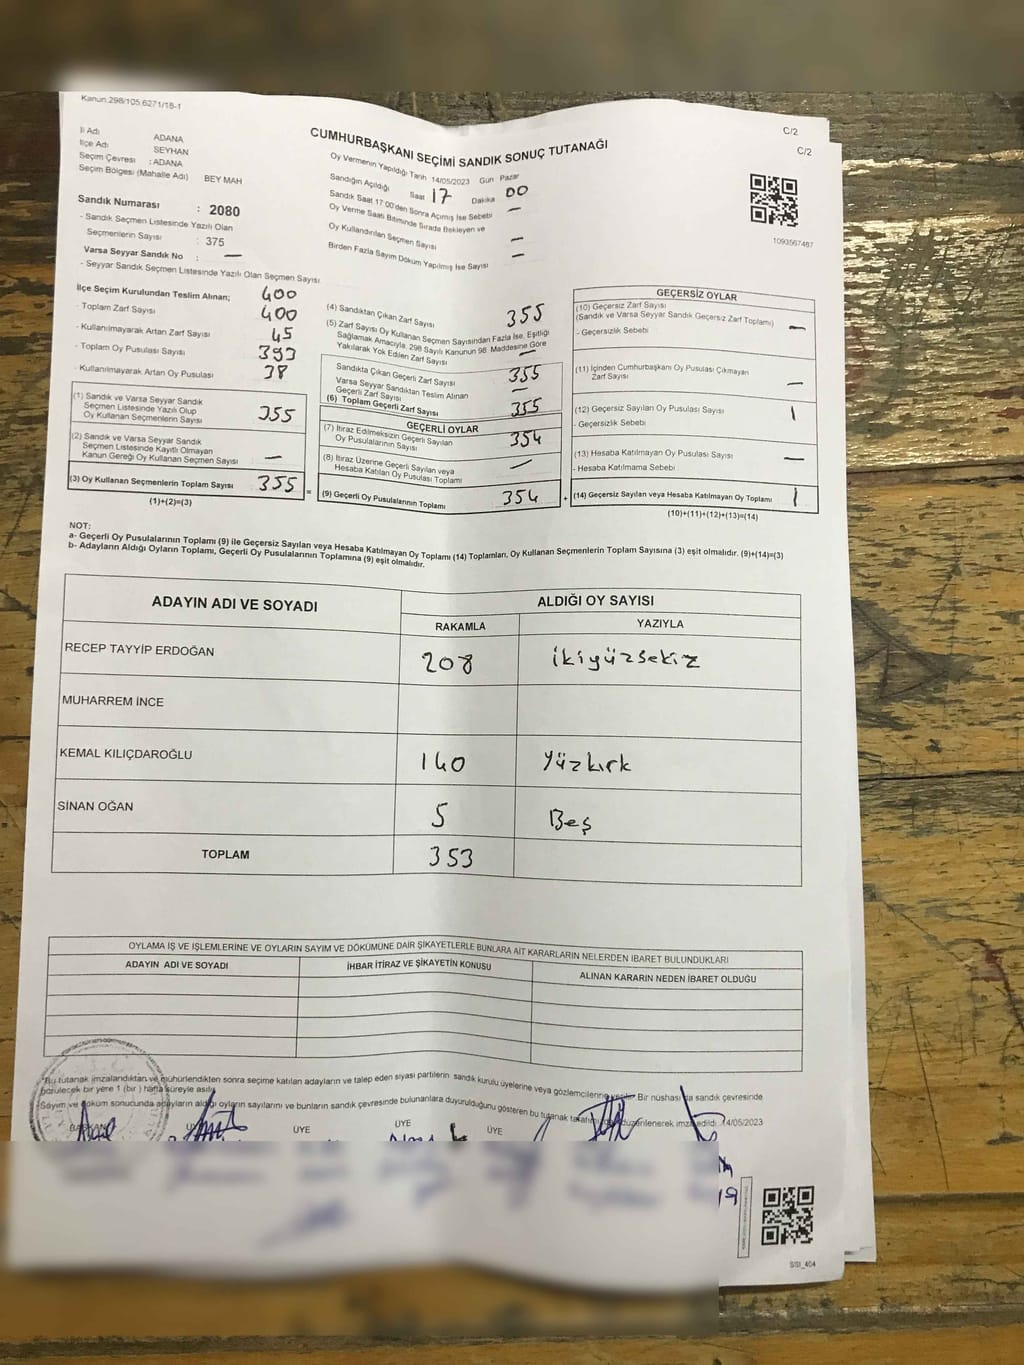 Kanun:298/105,6271/18-1
C/2
C/2
İl Adı ADANA
İlçe Adı SEYHAN
Seçim Çevresi : ADANA
Seçim Bölgesi (Mahalle Adı) BEY MAH
CUMHURBAŞKANI SEÇİMİ SANDIK SONUÇ TUTANAĞI
Oy Vermenin Yapıldığı Tarih 14/05/2023 Gün Pazar
Sandığın Açıldığı Saat 17 Dakika 00
Sandık Saat 17:00'den Sonra Açılmış İse Sebebi —
Oy Verme Saati Bitiminde Sırada Bekleyen ve
Oy Kullandırılan Seçmen Sayısı —
Birden Fazla Sayım Döküm Yapılmış İse Sayısı —
1093567487
Sandık Numarası : 2080
- Sandık Seçmen Listesinde Yazılı Olan
Seçmenlerin Sayısı : 375
Varsa Seyyar Sandık No : —
- Seyyar Sandık Seçmen Listesinde Yazılı Olan Seçmen Sayısı
İlçe Seçim Kurulundan Teslim Alınan; 400
- Toplam Zarf Sayısı 400
- Kullanılmayarak Artan Zarf Sayısı 45
- Toplam Oy Pusulası Sayısı 393
- Kullanılmayarak Artan Oy Pusulası 38
(1) Sandık ve Varsa Seyyar Sandık
Seçmen Listesinde Yazılı Olup
Oy Kullanan Seçmenlerin Sayısı 355
(2) Sandık ve Varsa Seyyar Sandık
Seçmen Listesinde Kayıtlı Olmayan
Kanun Gereği Oy Kullanan Seçmen Sayısı —
(3) Oy Kullanan Seçmenlerin Toplam Sayısı 355 =
(1)+(2)=(3)
(4) Sandıktan Çıkan Zarf Sayısı 355
(5) Zarf Sayısı Oy Kullanan Seçmen Sayısından Fazla İse, Eşitliği
Sağlamak Amacıyla, 298 Sayılı Kanunun 98. Maddesine Göre
Yakılarak Yok Edilen Zarf Sayısı —
Sandıkta Çıkan Geçerli Zarf Sayısı 355
Varsa Seyyar Sandıktan Teslim Alınan
Geçerli Zarf Sayısı —
(6) Toplam Geçerli Zarf Sayısı 355
GEÇERLİ OYLAR
(7) İtiraz Edilmeksizin Geçerli Sayılan
Oy Pusulalarının Sayısı 354
(8) İtiraz Üzerine Geçerli Sayılan veya
Hesaba Katılan Oy Pusulası Toplamı —
(9) Geçerli Oy Pusulalarının Toplamı 354 +
GEÇERSİZ OYLAR
(10) Geçersiz Zarf Sayısı
(Sandık ve Varsa Seyyar Sandık Geçersiz Zarf Toplamı) —
- Geçersizlik Sebebi
(11) İçinden Cumhurbaşkanı Oy Pusulası Çıkmayan
Zarf Sayısı —
(12) Geçersiz Sayılan Oy Pusulası Sayısı 1
- Geçersizlik Sebebi
(13) Hesaba Katılmayan Oy Pusulası Sayısı —
- Hesaba Katılmama Sebebi
(14) Geçersiz Sayılan veya Hesaba Katılmayan Oy Toplamı 1
(10)+(11)+(12)+(13)=(14)
NOT:
a- Geçerli Oy Pusulalarının Toplamı (9) ile Geçersiz Sayılan veya Hesaba Katılmayan Oy Toplamı (14) Toplamları, Oy Kullanan Seçmenlerin Toplam Sayısına (3) eşit olmalıdır. (9)+(14)=(3)
b- Adayların Aldığı Oyların Toplamı, Geçerli Oy Pusulalarının Toplamına (9) eşit olmalıdır.
ADAYIN ADI VE SOYADI ALDIĞI OY SAYISI
RAKAMLA YAZIYLA
RECEP TAYYİP ERDOĞAN 208 ikiyüzsekiz
MUHARREM İNCE
KEMAL KILIÇDAROĞLU 140 Yüzkırk
SİNAN OĞAN 5 Beş
TOPLAM 353
OYLAMA İŞ VE İŞLEMLERİNE VE OYLARIN SAYIM VE DÖKÜMÜNE DAİR ŞİKAYETLERLE BUNLARA AİT KARARLARIN NELERDEN İBARET BULUNDUKLARI
ADAYIN ADI VE SOYADI İHBAR İTİRAZ VE ŞİKAYETİN KONUSU ALINAN KARARIN NEDEN İBARET OLDUĞU
*Bu tutanak imzalandıktan ve mühürlendikten sonra seçime katılan adayların ve talep eden siyasi partilerin sandık kurulu üyelerine veya gözlemcilerine Bir nüshası da sandık çevresinde
görülecek bir yere 1 (bir) hafta süreyle asılır.
Sayım ve döküm sonucunda adayların aldığı oyların sayılarını ve bunların sandık çevresinde bulunanlara duyurulduğunu gösteren bu tutanak düzenlenerek imza edildi. 14/05/2023
BAŞKAN ÜYE ÜYE ÜYE
SSI_404